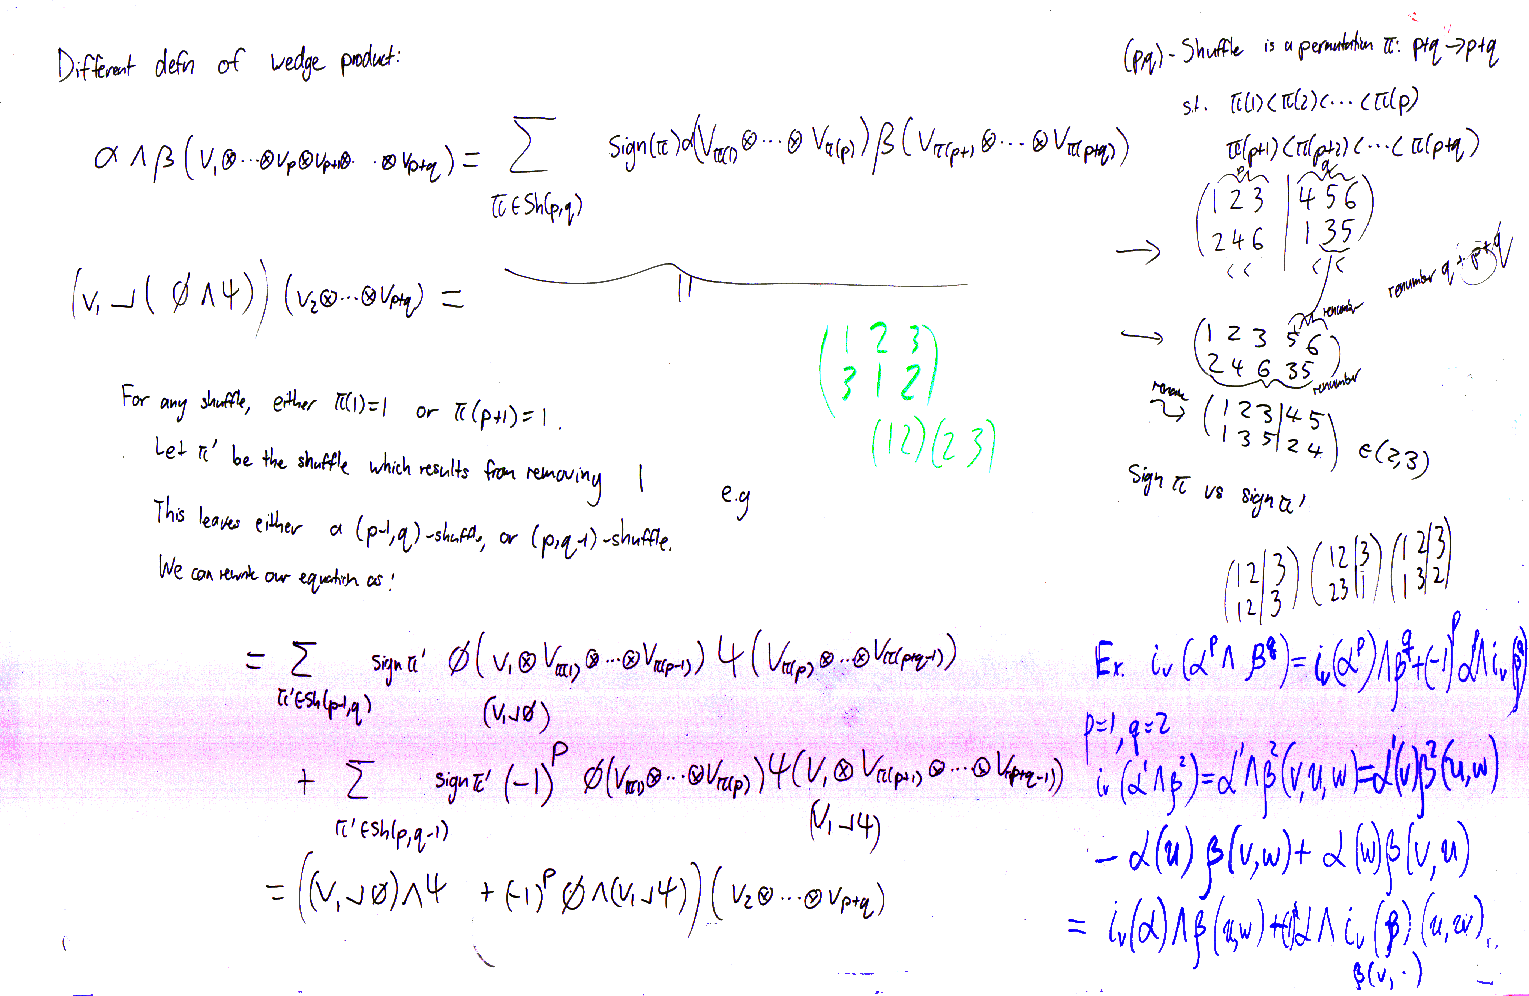 Different defn of wedge product:
α ∧ β (v₁⊗···⊗vₚ⊗vₚ₊₁⊗···⊗vₚ₊q) = ∑ sign(π) α(v_π(1) ⊗···⊗ v_π(p)) β(v_π(p+1) ⊗···⊗ v_π(p+q))
π ∈ Sh(p,q)
(v₁ ⌟ (φ ∧ ψ)) (v₂⊗···⊗vₚ₊q) =
||
(1 2 3
3 1 2)
(12)(23)
For any shuffle, either π(1)=1 or π(p+1)=1.
Let π' be the shuffle which results from removing 1
e.g
This leaves either a (p-1,q)-shuffle, or (p,q-1)-shuffle.
We can rewrite our equation as:
= ∑ sign π' φ(v₁⊗v_π(1)⊗···⊗v_π(p-1)) ψ(v_π(p)⊗···⊗v_π(p+q-1))
π'∈Sh(p-1,q)
(v₁⌟φ)
+ ∑ sign π' (-1)^p φ(v_π(1)⊗···⊗v_π(p)) ψ(v₁⊗v_π(p+1)⊗···⊗v_π(p+q-1))
π'∈Sh(p,q-1)
(v₁⌟ψ)
= ((v₁⌟φ)∧ψ + (-1)^p φ∧(v₁⌟ψ)) (v₂⊗···⊗vₚ₊q)
(p,q)-Shuffle is a permutation π: p+q → p+q
s.t. π(1)<π(2)<···<π(p)
π(p+1)<π(p+2)<···<π(p+q)
p q
(1 2 3 | 4 5 6)
→ (2 4 6 | 1 3 5)
< < < <
renumber q + p+q
renumber
→ (1 2 3 5 6
2 4 6 3 5)
renumber
(1 2 3 | 4 5
1 3 5 | 2 4) ∈ (2,3)
Sign π vs sign π'
(1 2 | 3) (1 2 | 3) (1 2 | 3)
(1 2 | 3) (2 3 | 1) (1 3 | 2)
Ex. i_v(α^p ∧ β^q) = i_v(α^p) ∧ β^q + (-1)^p α ∧ i_v β^q
p=1, q=2
i_v(α¹∧β²) = α¹∧β²(v,u,w) = α¹(v)β²(u,w)
- α(u) β(v,w) + α(w) β(v,u)
= i_v(α) ∧ β(u,w) + α ∧ i_v(β)(u,w)
β(v, ·)